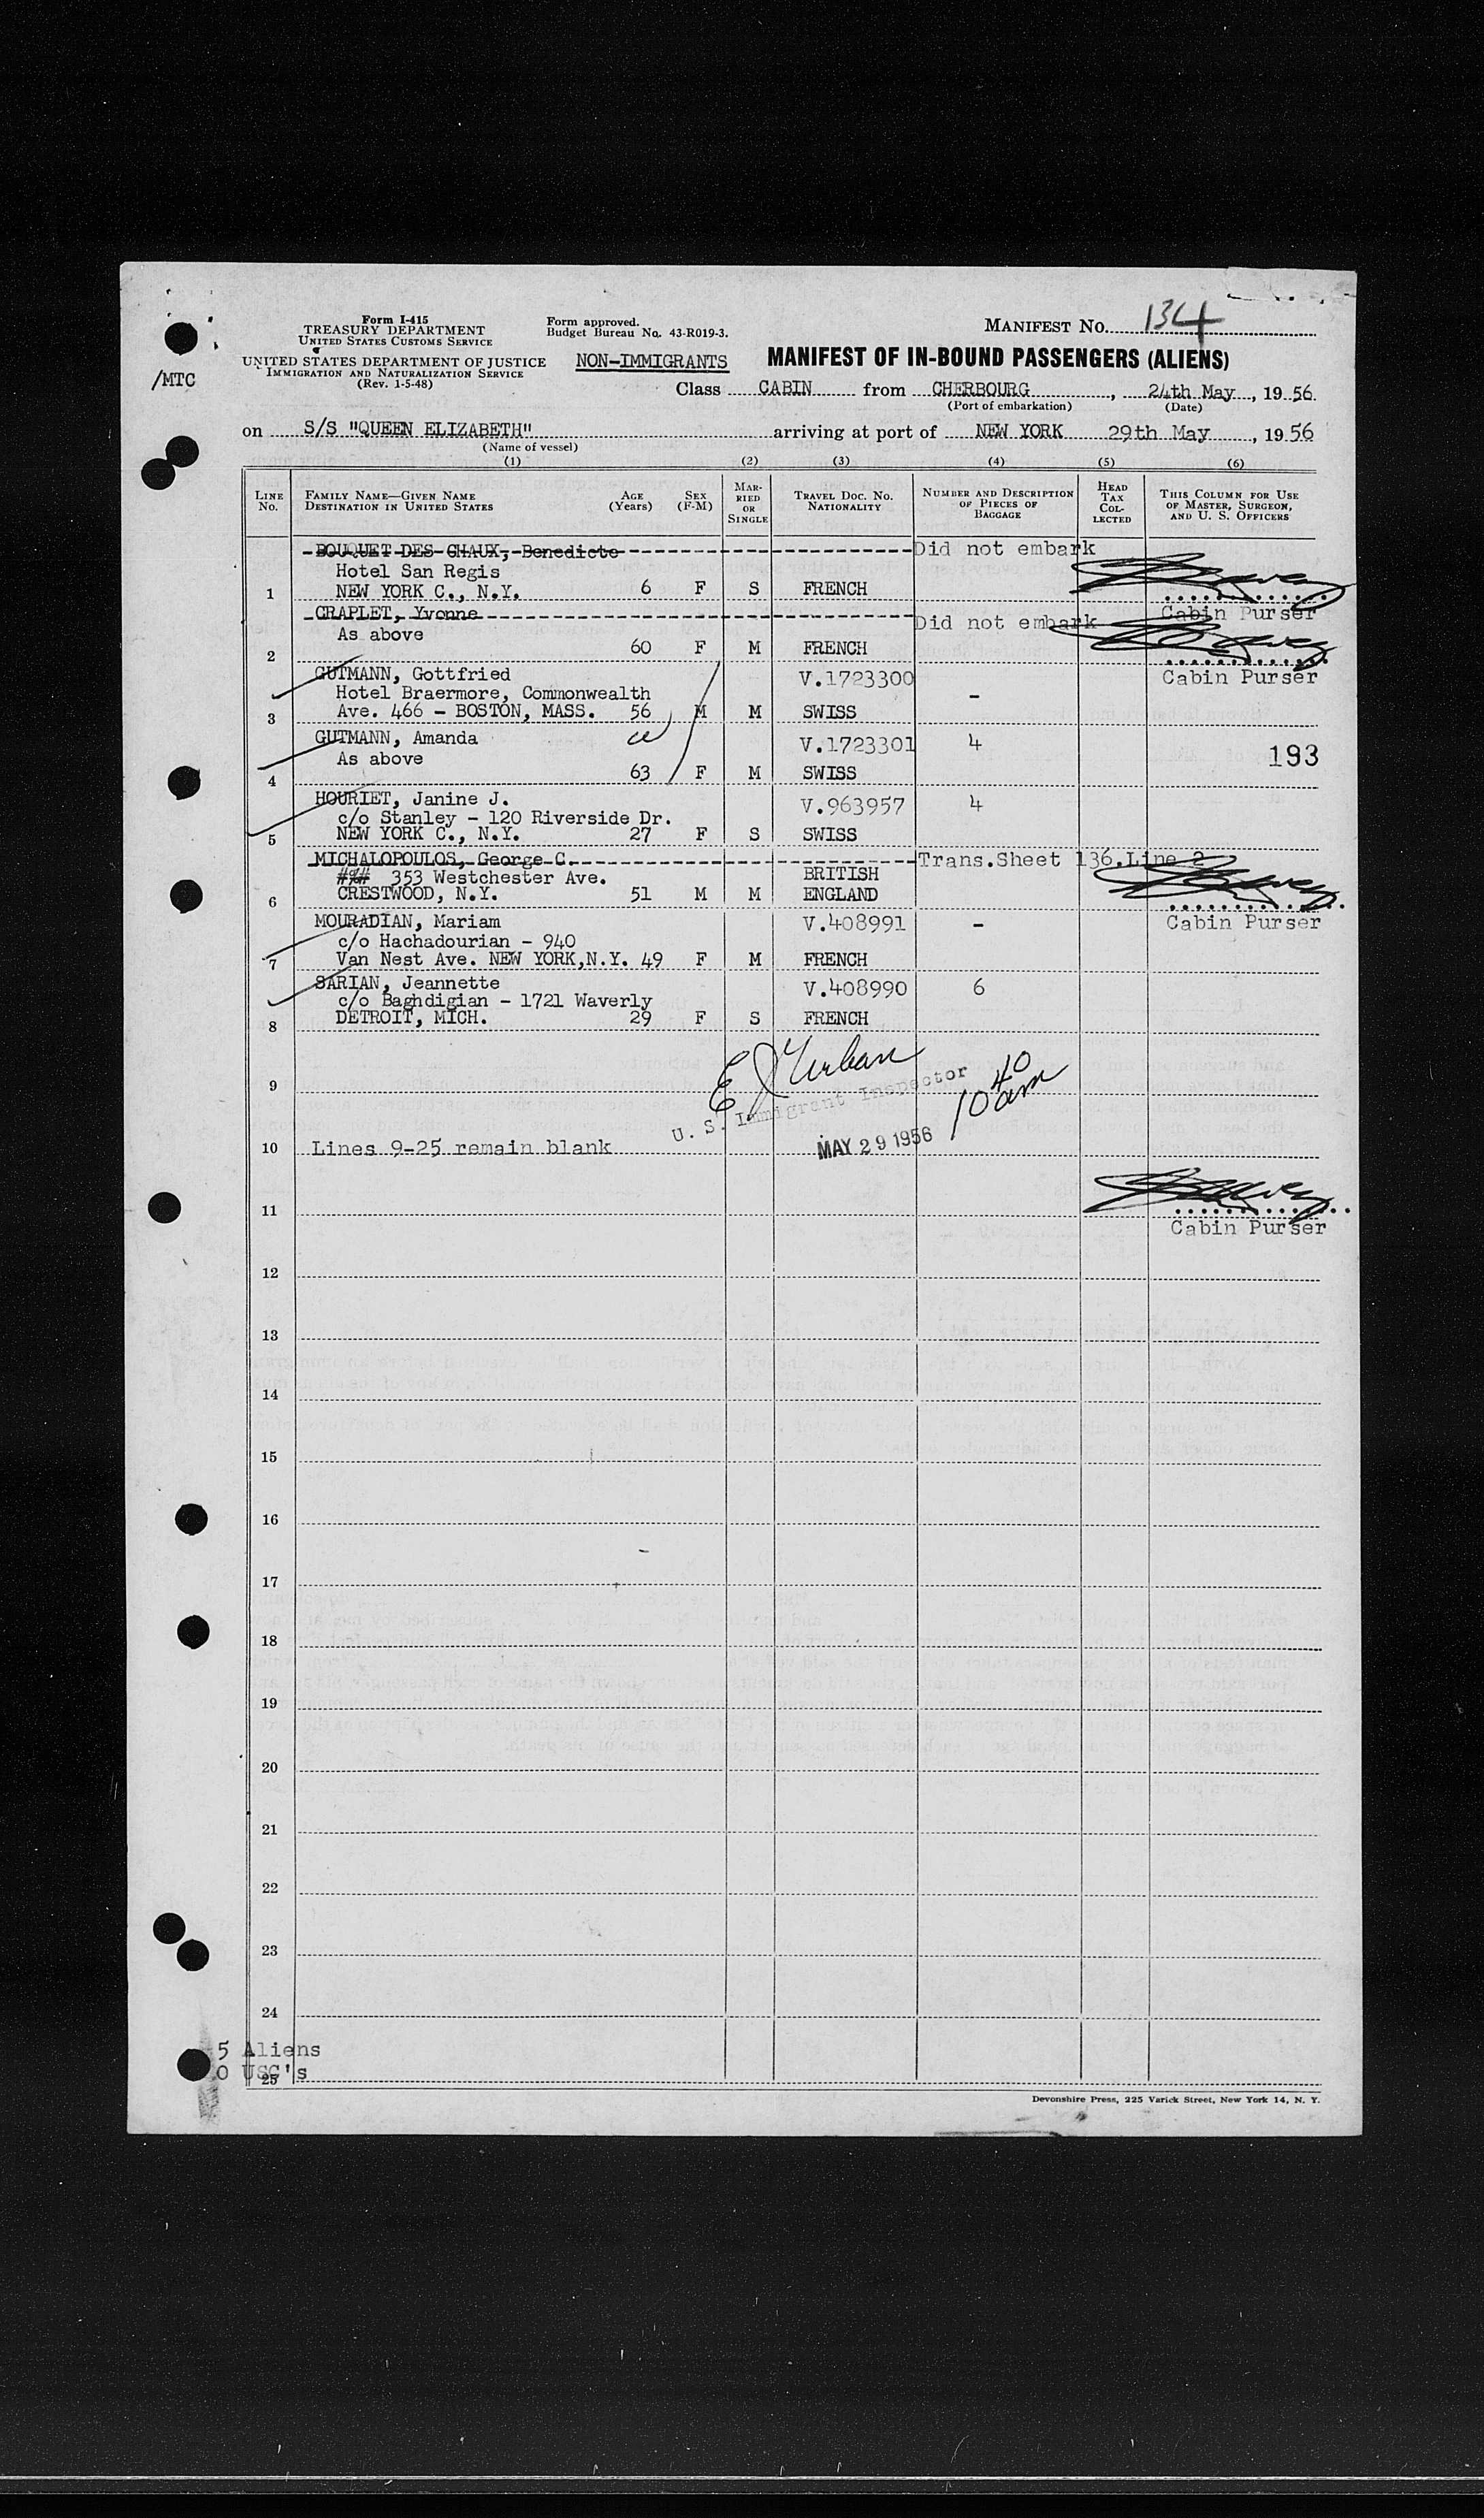 Form I-415
TREASURY DEPARTMENT
UNITED STATES CUSTOMS SERVICE
UNITED STATES DEPARTMENT OF JUSTICE
IMMIGRATION AND NATURALIZATION SERVICE
(Rev. 1-5-48)
/MTC
Form approved.
Budget Bureau No. 43-R019-3.
NON-IMMIGRANTS
MANIFEST No. 134
MANIFEST OF IN-BOUND PASSENGERS (ALIENS)
Class CABIN from CHERBOURG, 24th May, 1956
(Port of embarkation) (Date)
on S/S "QUEEN ELIZABETH" arriving at port of NEW YORK 29th May, 1956
(Name of vessel)
(1) (2) (3) (4) (5) (6)
LINE No. FAMILY NAME—GIVEN NAME DESTINATION IN UNITED STATES AGE (Years) SEX (F-M) MARRIED OR SINGLE TRAVEL DOC. NO. NATIONALITY NUMBER AND DESCRIPTION OF PIECES OF BAGGAGE HEAD TAX COLLECTED THIS COLUMN FOR USE OF MASTER, SURGEON, AND U. S. OFFICERS
BOUQUET DES CHAUX, Benedicte Did not embark
Hotel San Regis
1 NEW YORK C., N.Y. 6 F S FRENCH
Cabin Purser
CRAPLET, Yvonne Did not embark
As above
2 60 F M FRENCH
Cabin Purser
GUTMANN, Gottfried V.1723300
Hotel Braermore, Commonwealth -
3 Ave. 466 - BOSTON, MASS. 56 M M SWISS
GUTMANN, Amanda V.1723301 4
As above 193
4 63 F M SWISS
HOURIET, Janine J. V.963957 4
c/o Stanley - 120 Riverside Dr.
5 NEW YORK C., N.Y. 27 F S SWISS
MICHALOPOULOS, George C. Trans.Sheet 136,Line 2
353 Westchester Ave. BRITISH
6 CRESTWOOD, N.Y. 51 M M ENGLAND
Cabin Purser
MOURADIAN, Mariam V.408991 -
c/o Hachadourian - 940
7 Van Nest Ave. NEW YORK,N.Y. 49 F M FRENCH
SARIAN, Jeannette V.408990 6
c/o Baghdigian - 1721 Waverly
8 DETROIT, MICH. 29 F S FRENCH
E J Urban
9 U. S. Immigrant Inspector 10 40 am
10 Lines 9-25 remain blank MAY 29 1956
11
Cabin Purser
12
13
14
15
16
17
18
19
20
21
22
23
24
5 Aliens
0 USC's
25
Devonshire Press, 225 Varick Street, New York 14, N. Y.